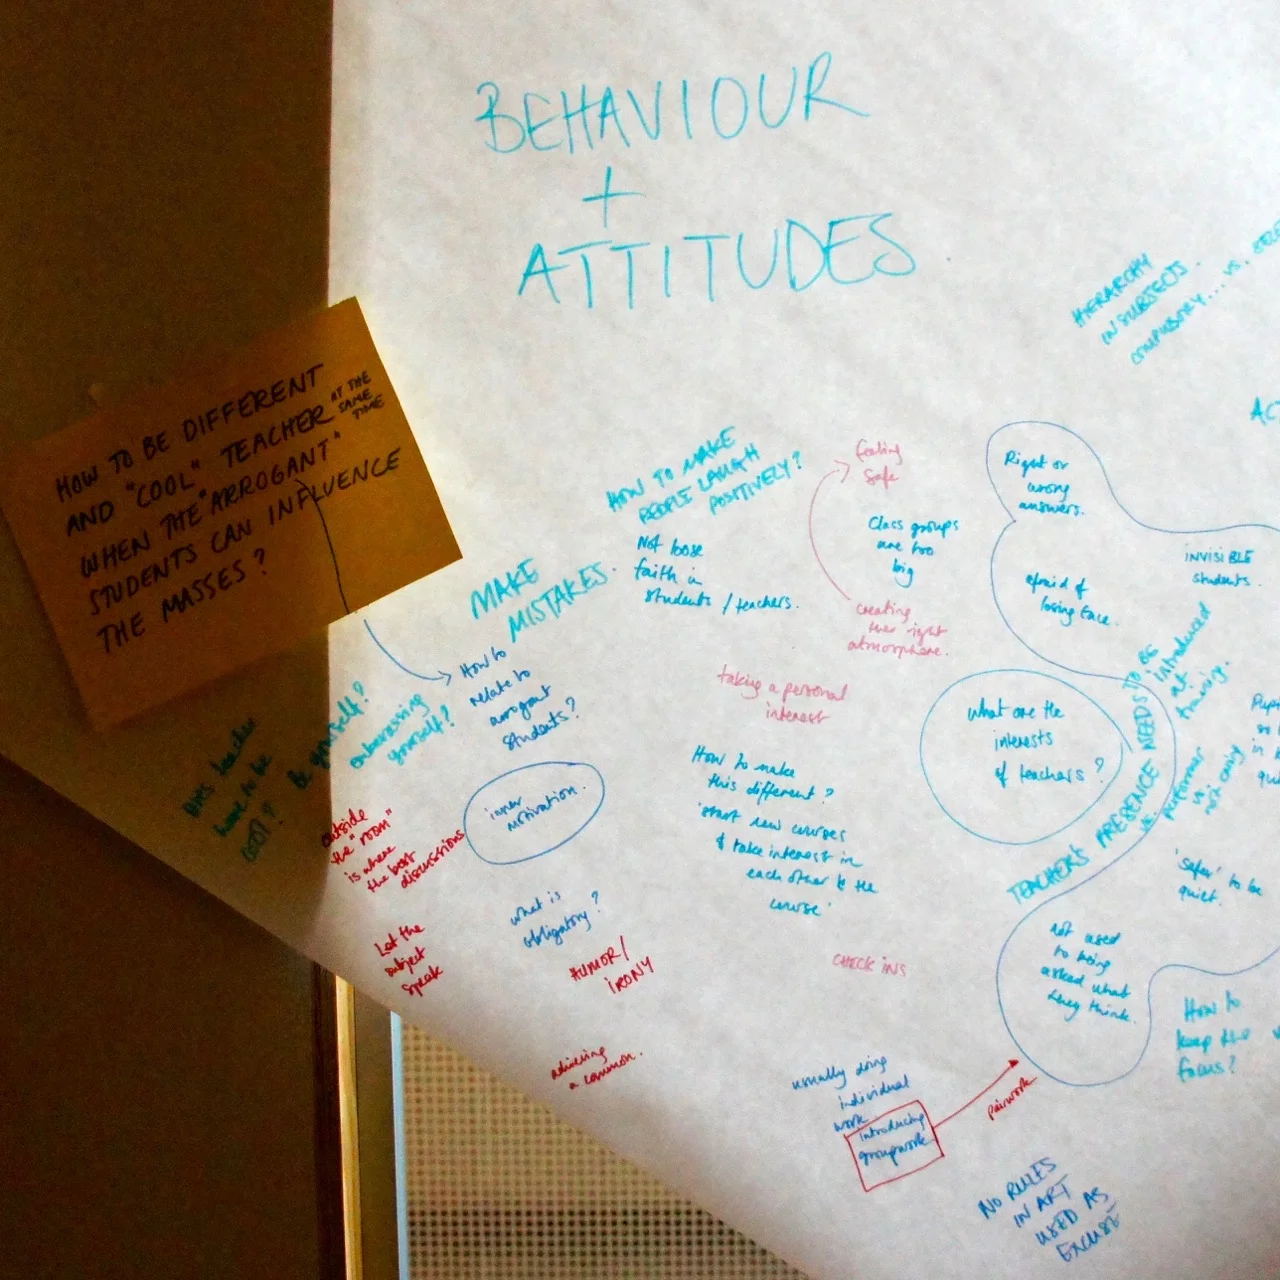 BEHAVIOUR
+
ATTITUDES
HOW TO BE DIFFERENT
AND "COOL" TEACHER AT THE
SAME
TIME
WHEN THE "ARROGANT"
STUDENTS CAN INFLUENCE
THE MASSES?
HIERARCHY
IN SUBJECTS.
vs.
HOW TO MAKE
PEOPLE LAUGH
POSITIVELY?
Not loose
faith in
students / teachers.
feeling
safe
Class groups
are too
big
creating
the right
atmosphere.
Right or
wrong
answers.
afraid of
losing face.
INVISIBLE
students.
MAKE
MISTAKES.
How to
relate to
arrogant
students?
Does teacher
have to be
COOL?
Be yourself?
embarrassing
yourself?
taking a personal
interest
What are the
interests
of teachers?
TEACHER'S PRESENCE NEEDS TO BE
introduced
at
training.
vs. performer
vs.
inner
motivation.
outside
the "room"
is where
the best
discussions
How to make
this different?
'start new courses
& take interest in
each other & the
course'
'safer' to be
quiet.
what is
obligatory?
Let the
subject
speak
HUMOR/
IRONY
CHECK INS
not used
to being
asked what
they think.
How to
keep the
focus?
achieving
a common.
usually doing
individual
work.
introducing
groupwork.
pairwork
NO RULES
IN ART
USED AS
EXCUSE